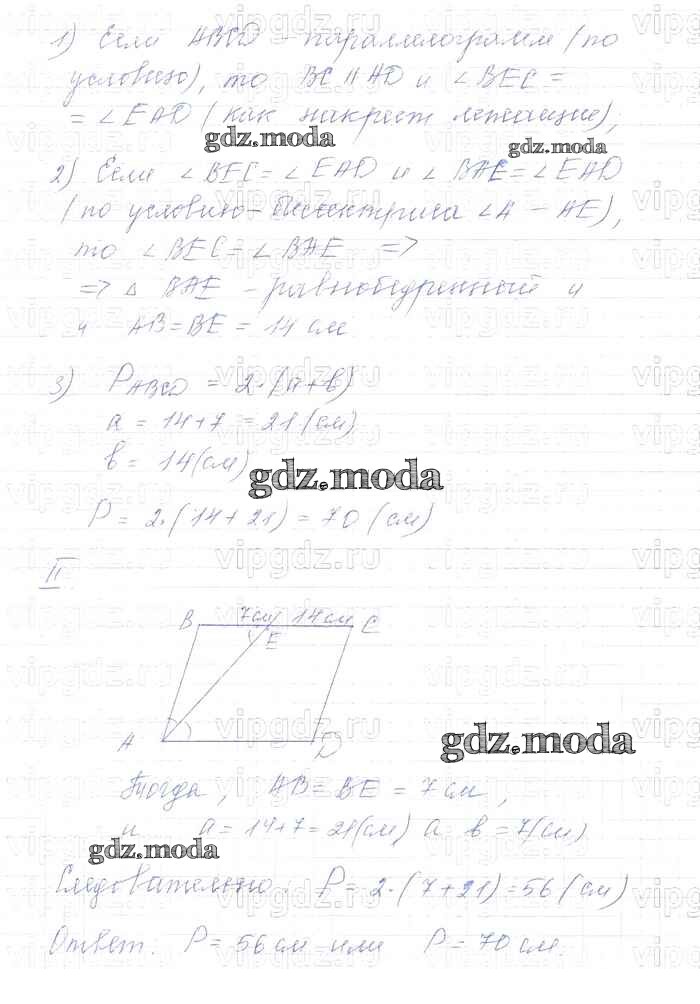 1) Если ABCD - параллелограмм (по
условию), то BC || AD и ∠BEC =
= ∠EAD (как накрест лежащие);
gdz.moda
gdz.moda
2) Если ∠BEC = ∠EAD и ∠BAE = ∠EAD
(по условию - биссектриса ∠A - AE),
то ∠BEC = ∠BAE =>
=> △ BAE - равнобедренный и
и AB = BE = 14 см
3) P ABCD = 2·(a+b)
a = 14+7 = 21 (см)
b = 14 (см)
gdz.moda
P = 2·(14+21) = 70 (см)
II
B 7см 14см C
E
A D
gdz.moda
Тогда, AB = BE = 7 см,
и a = 14+7 = 21(см), а b = 7(см)
gdz.moda
Следовательно: P = 2·(7+21) = 56 (см)
Ответ: P = 56 см или P = 70 см.
vipgdz.ru